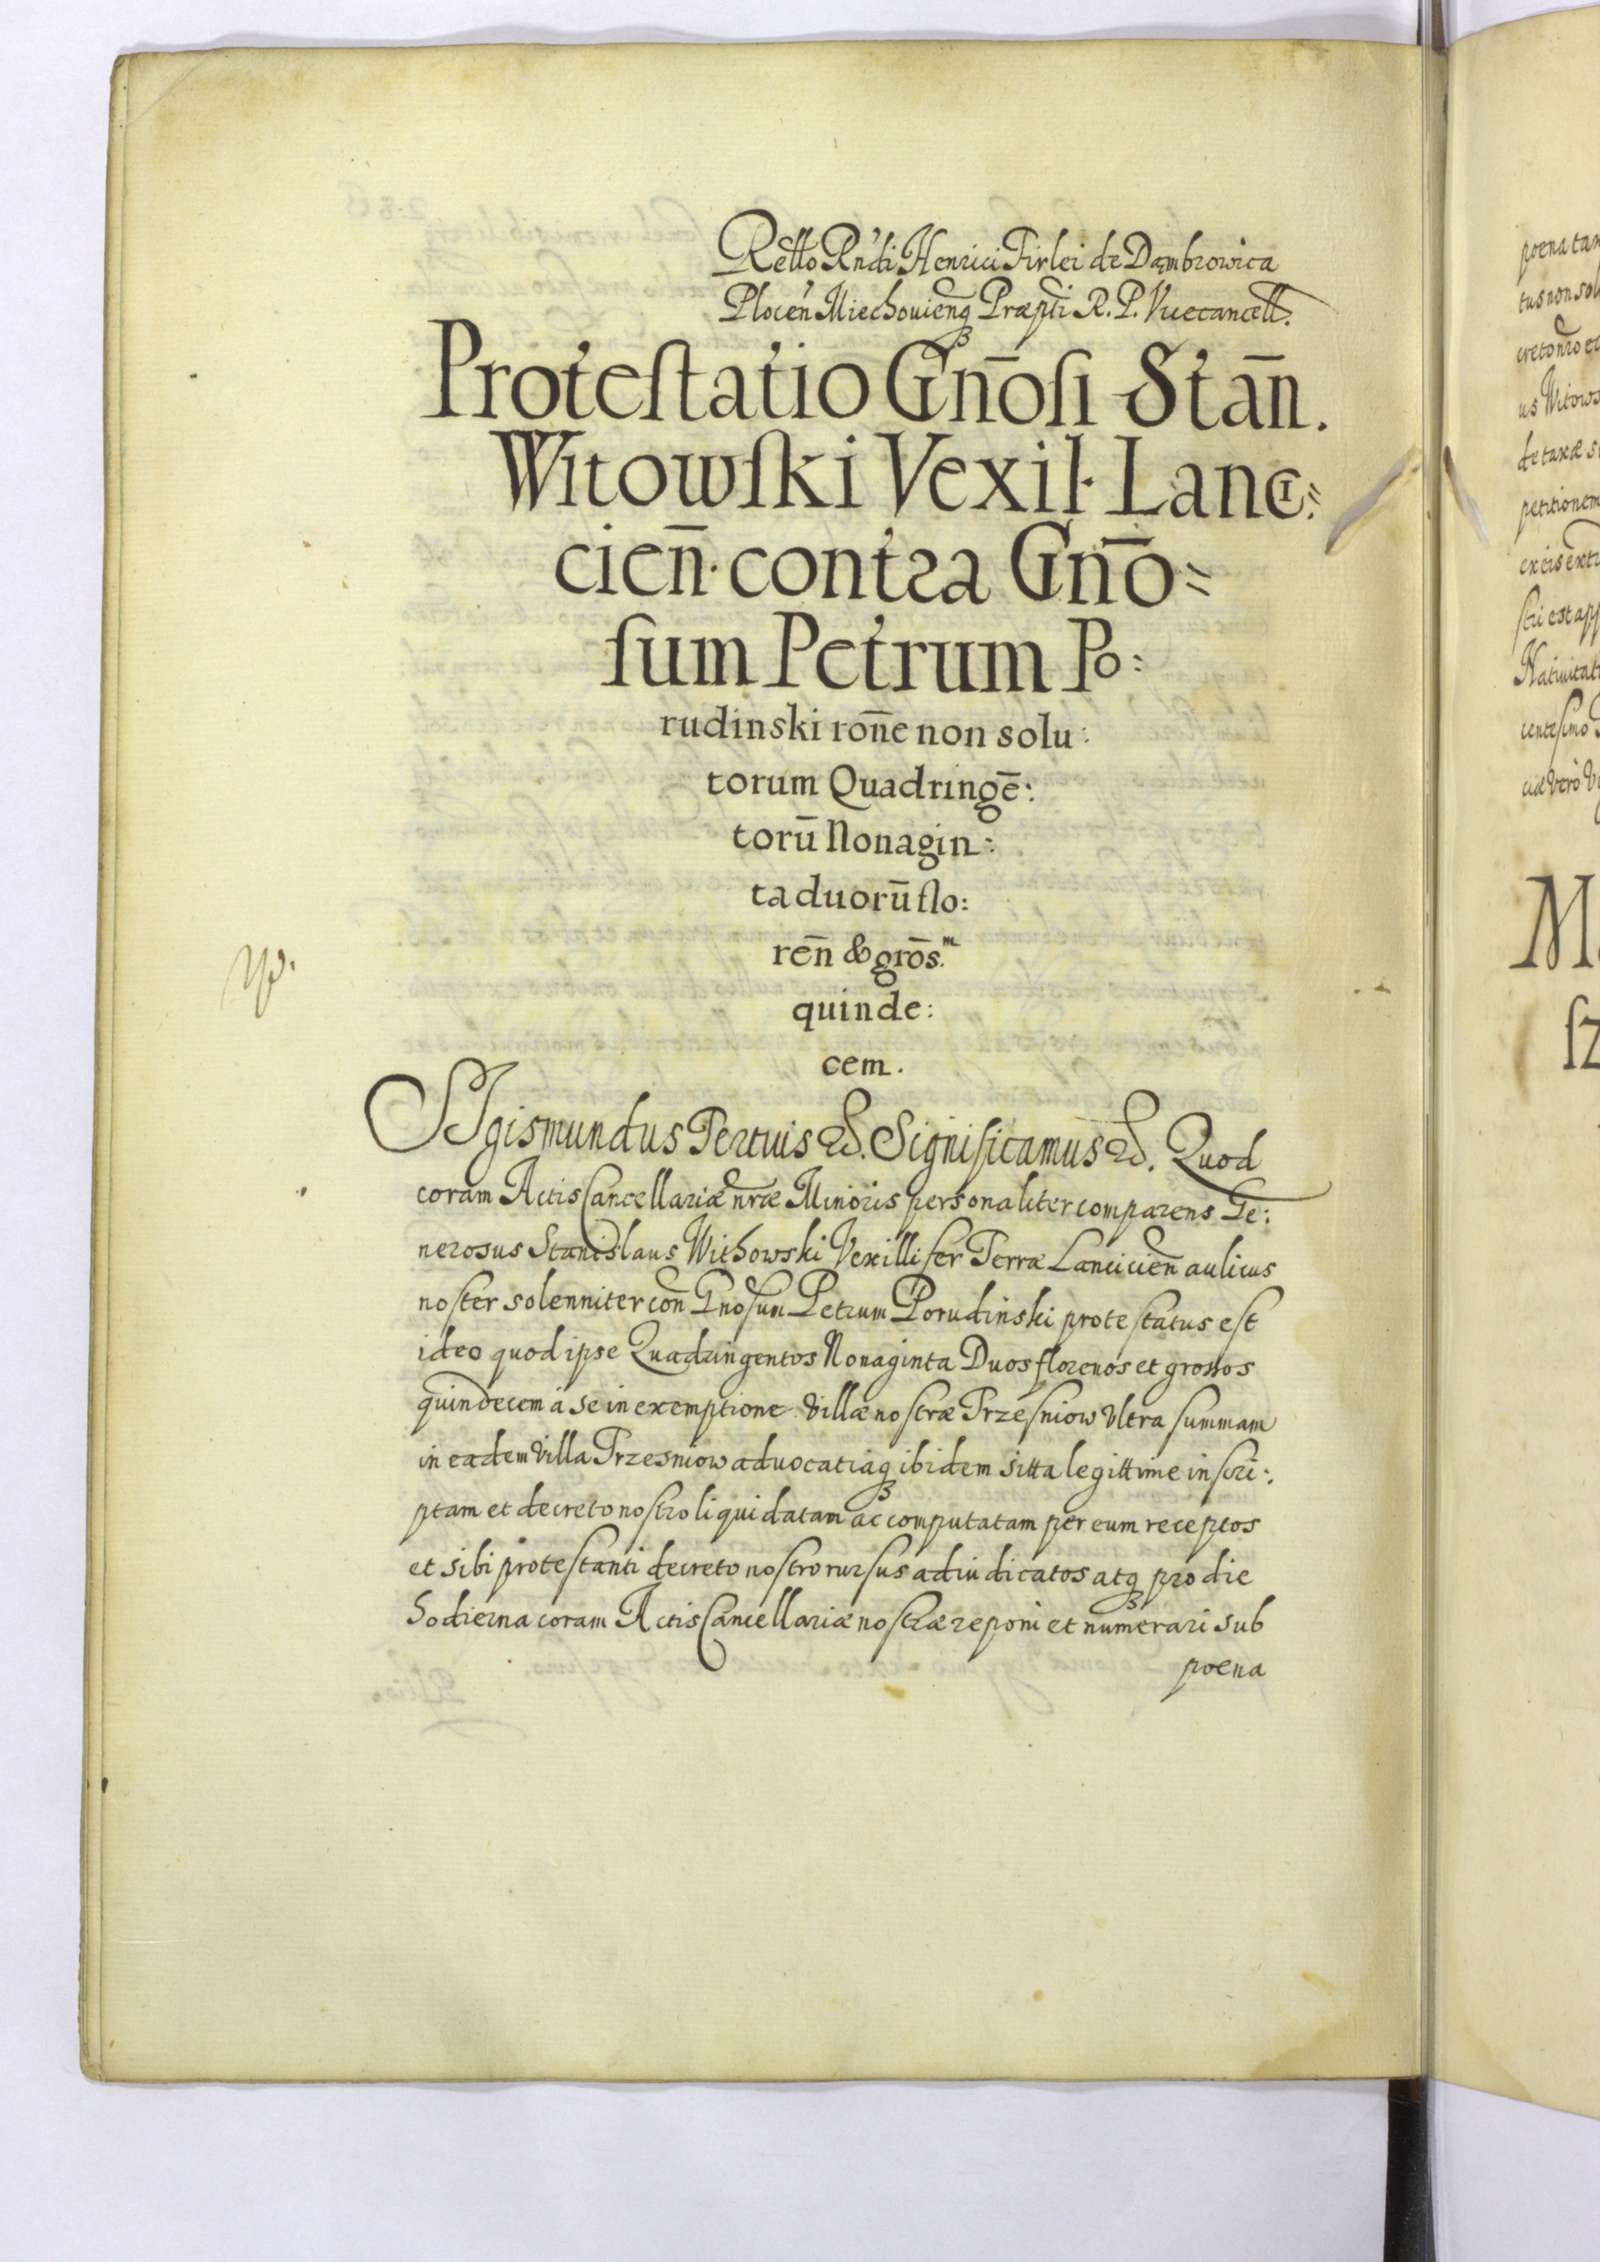 Rello Rńdi Henrici Firlei de Dąmbrowica
Plocen̄ Miechovieńq Præpti R. P. Vicecancell.
Proteſtatio Gn̄oſi Stan̄.
Witowſki Vexil. Lanc:
cien̄. contra Gn̄o=
ſum Petrum Po:
rudinski rōne non solu:
torum Quadringē:
torū Nonagin:
ta duorū flo:
ren̄ & grōs.m
quinde:
cem.
SIgismundus Tertius &. Significamus &. Quod
coram Actis Cancellariæ nræ Minoris personaliter comparens Ge:
nerosus Stanislaus Withowski Vexillifer Terræ Lancicien̄ aulicus
noster solenniter con̄ Gnosum Petrum Porudinski protestatus est
ideo quod ipse Quadringentos Nonaginta Duos florenos et grossos
quindecem á se in exemptione villæ nostræ Trzesniow ultra summam
in eadem villa Trzesniow advocatiáq ibidem sitta legittime inscri:
ptam et decreto nostro liquidatam ac computatam per eum receptos
et sibi protestanti decreto nostro rursus adiudicatos atq pro die
hodierna coram Actis Cancellariæ nostræ reponi et numerari sub
poena
poena tan
tus non sol
creto nro et
us Witows
de taxæ s
petitionem
ex eis extr
stri est app
Nativitat
centesimo
ciæ vero V
M
ſz